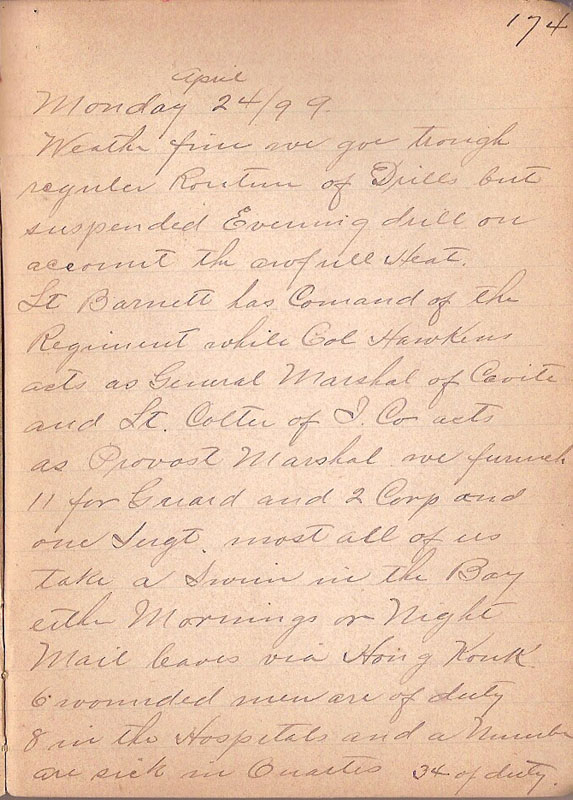 174
April
Monday 24/99
Weathe fine we goe trough
reguler Routine of Drills but
suspended Evening drill on
account the awfull Heat.
Lt Barnett has Comand of the
Regiment while Col Hawkins
acts as General Marshal of Cavite
and Lt. Colter of I. Co acts
as Provost Marshal we furnish
11 for Guard and 2 Corp and
one Sergt. most all of us
take a Swim in the Bay
eithe Mornings or Night
Mail leaves via Hong Konk.
6 wounded men are of duty
8 in the Hospitals and a Number
are sick in Quartes 34 of duty.